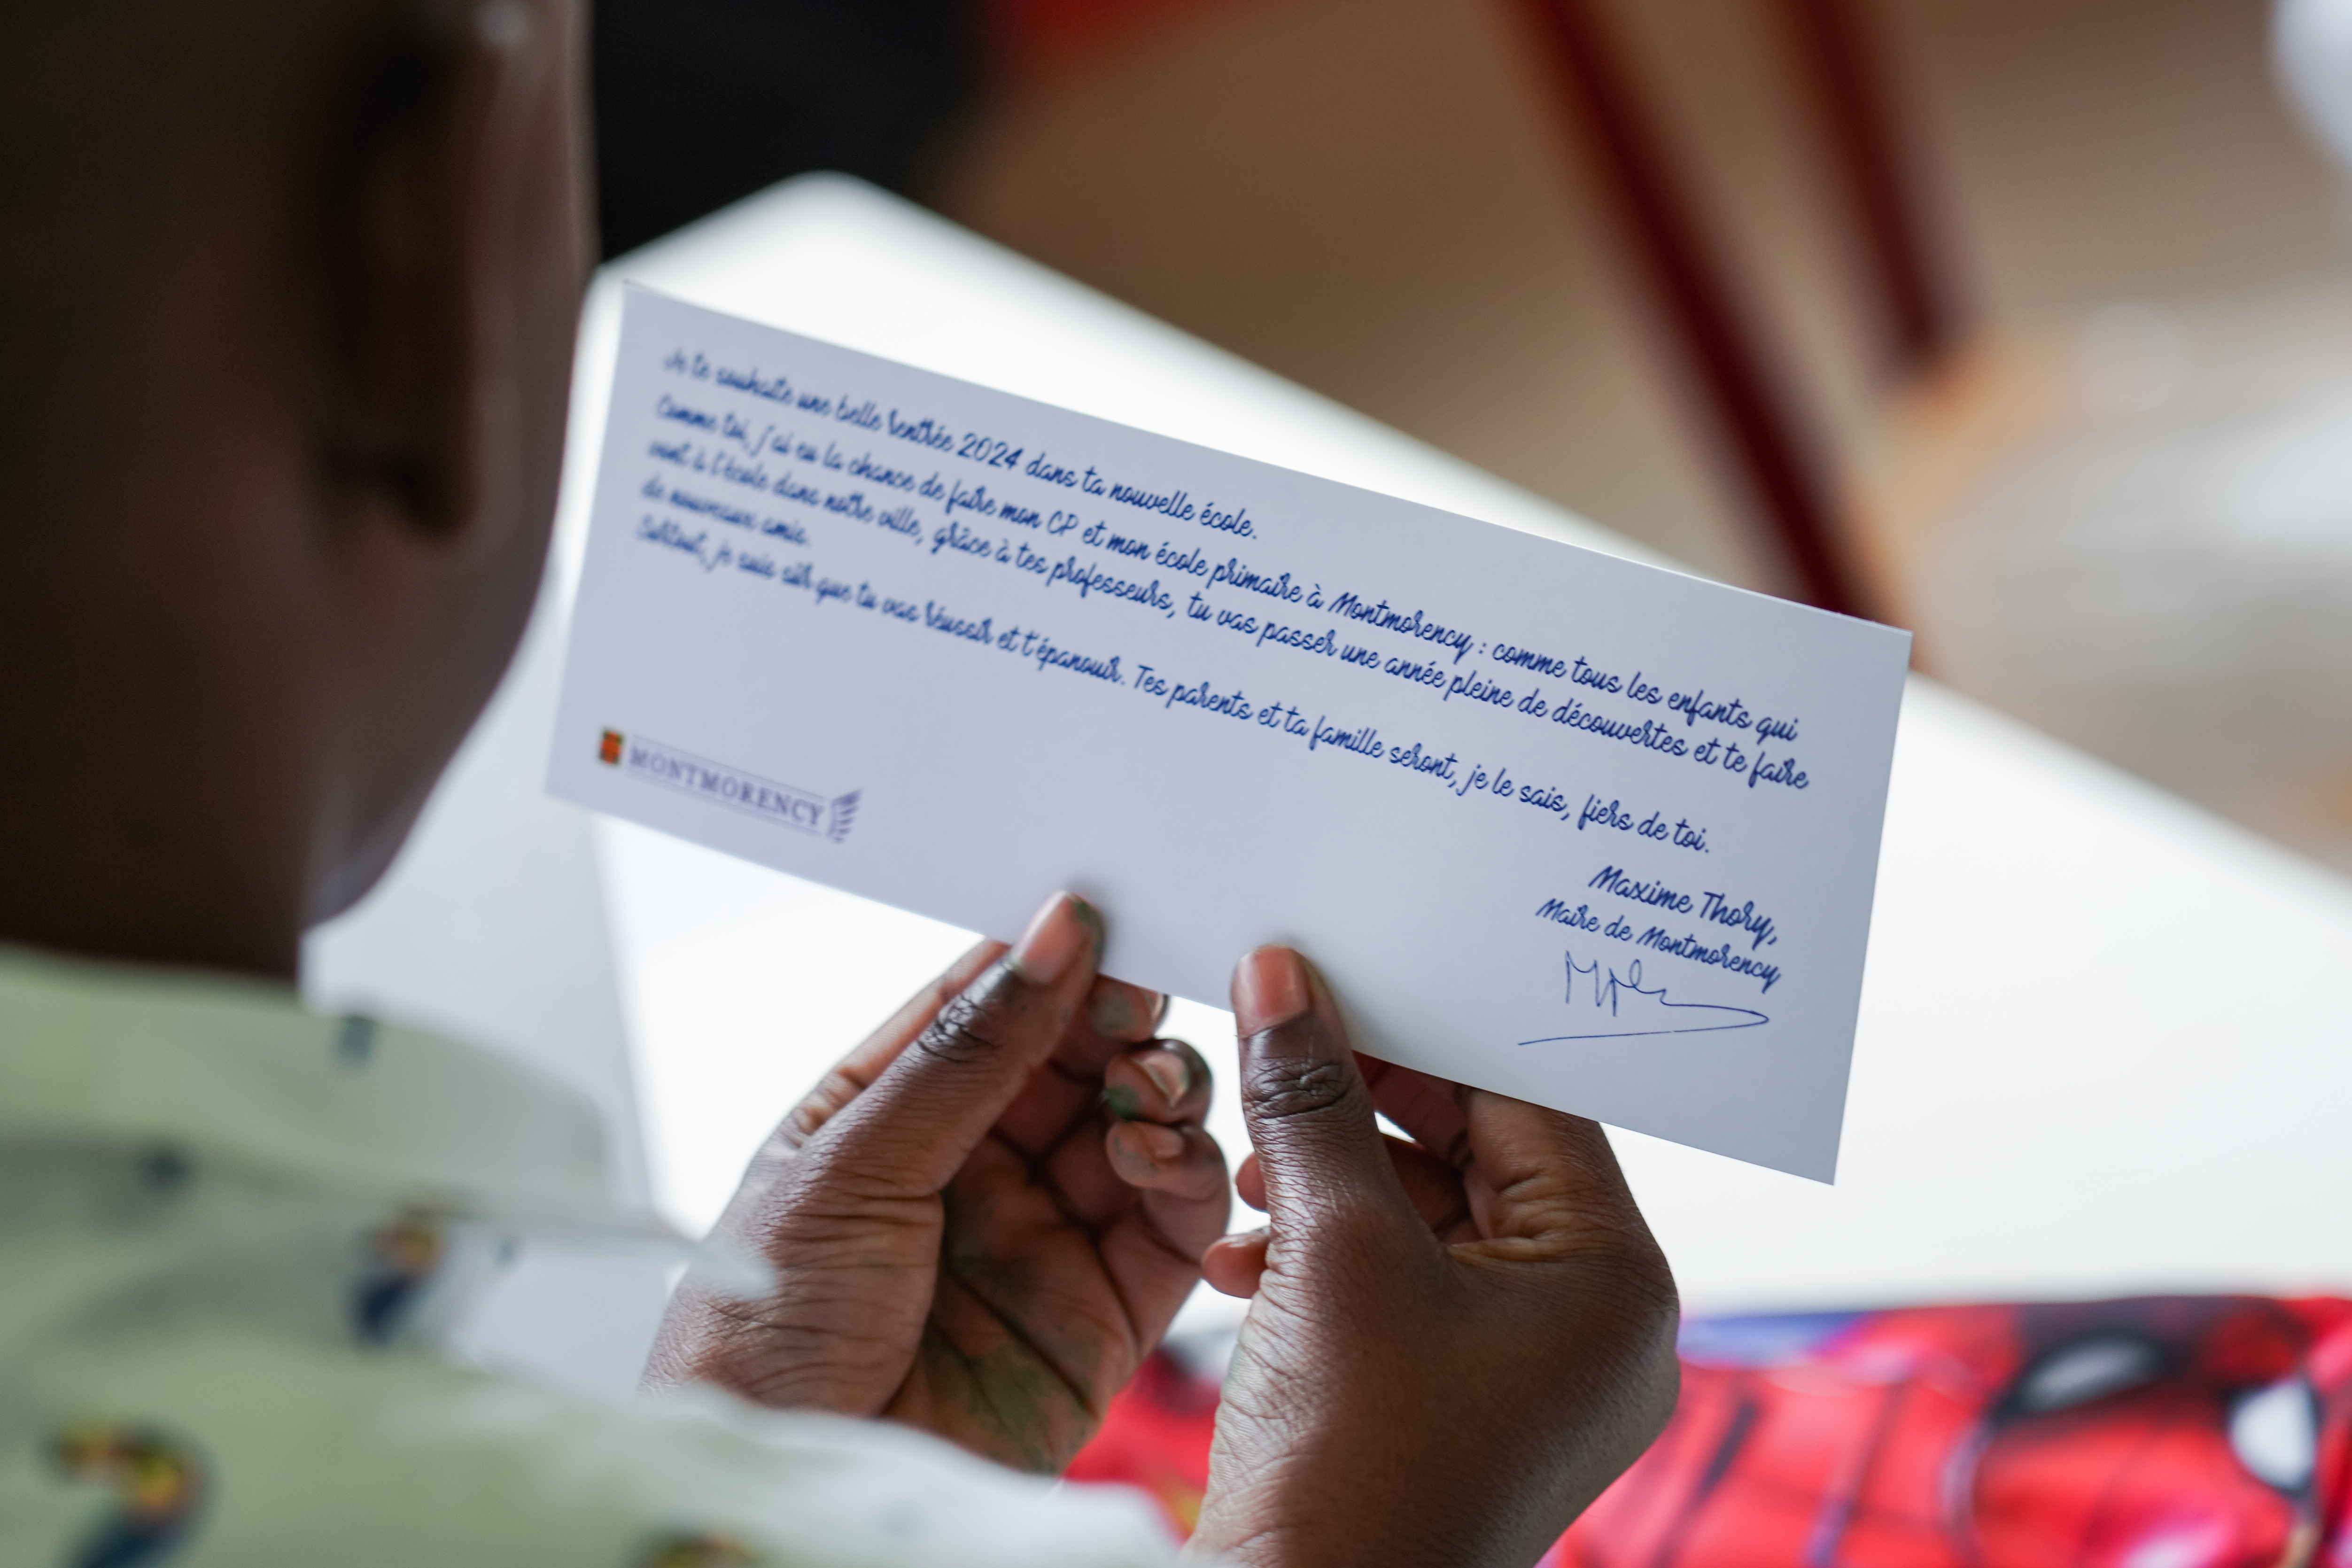 Je te souhaite une belle rentrée 2024 dans ta nouvelle école.
Comme toi, j'ai eu la chance de faire mon CP et mon école primaire à Montmorency : comme tous les enfants qui
vont à l'école dans notre ville, grâce à tes professeurs, tu vas passer une année pleine de découvertes et te faire
de nouveaux amis.
Surtout, je suis sûr que tu vas réussir et t'épanouir. Tes parents et ta famille seront, je le sais, fiers de toi.
Maxime Thory,
Maire de Montmorency
MONTMORENCY